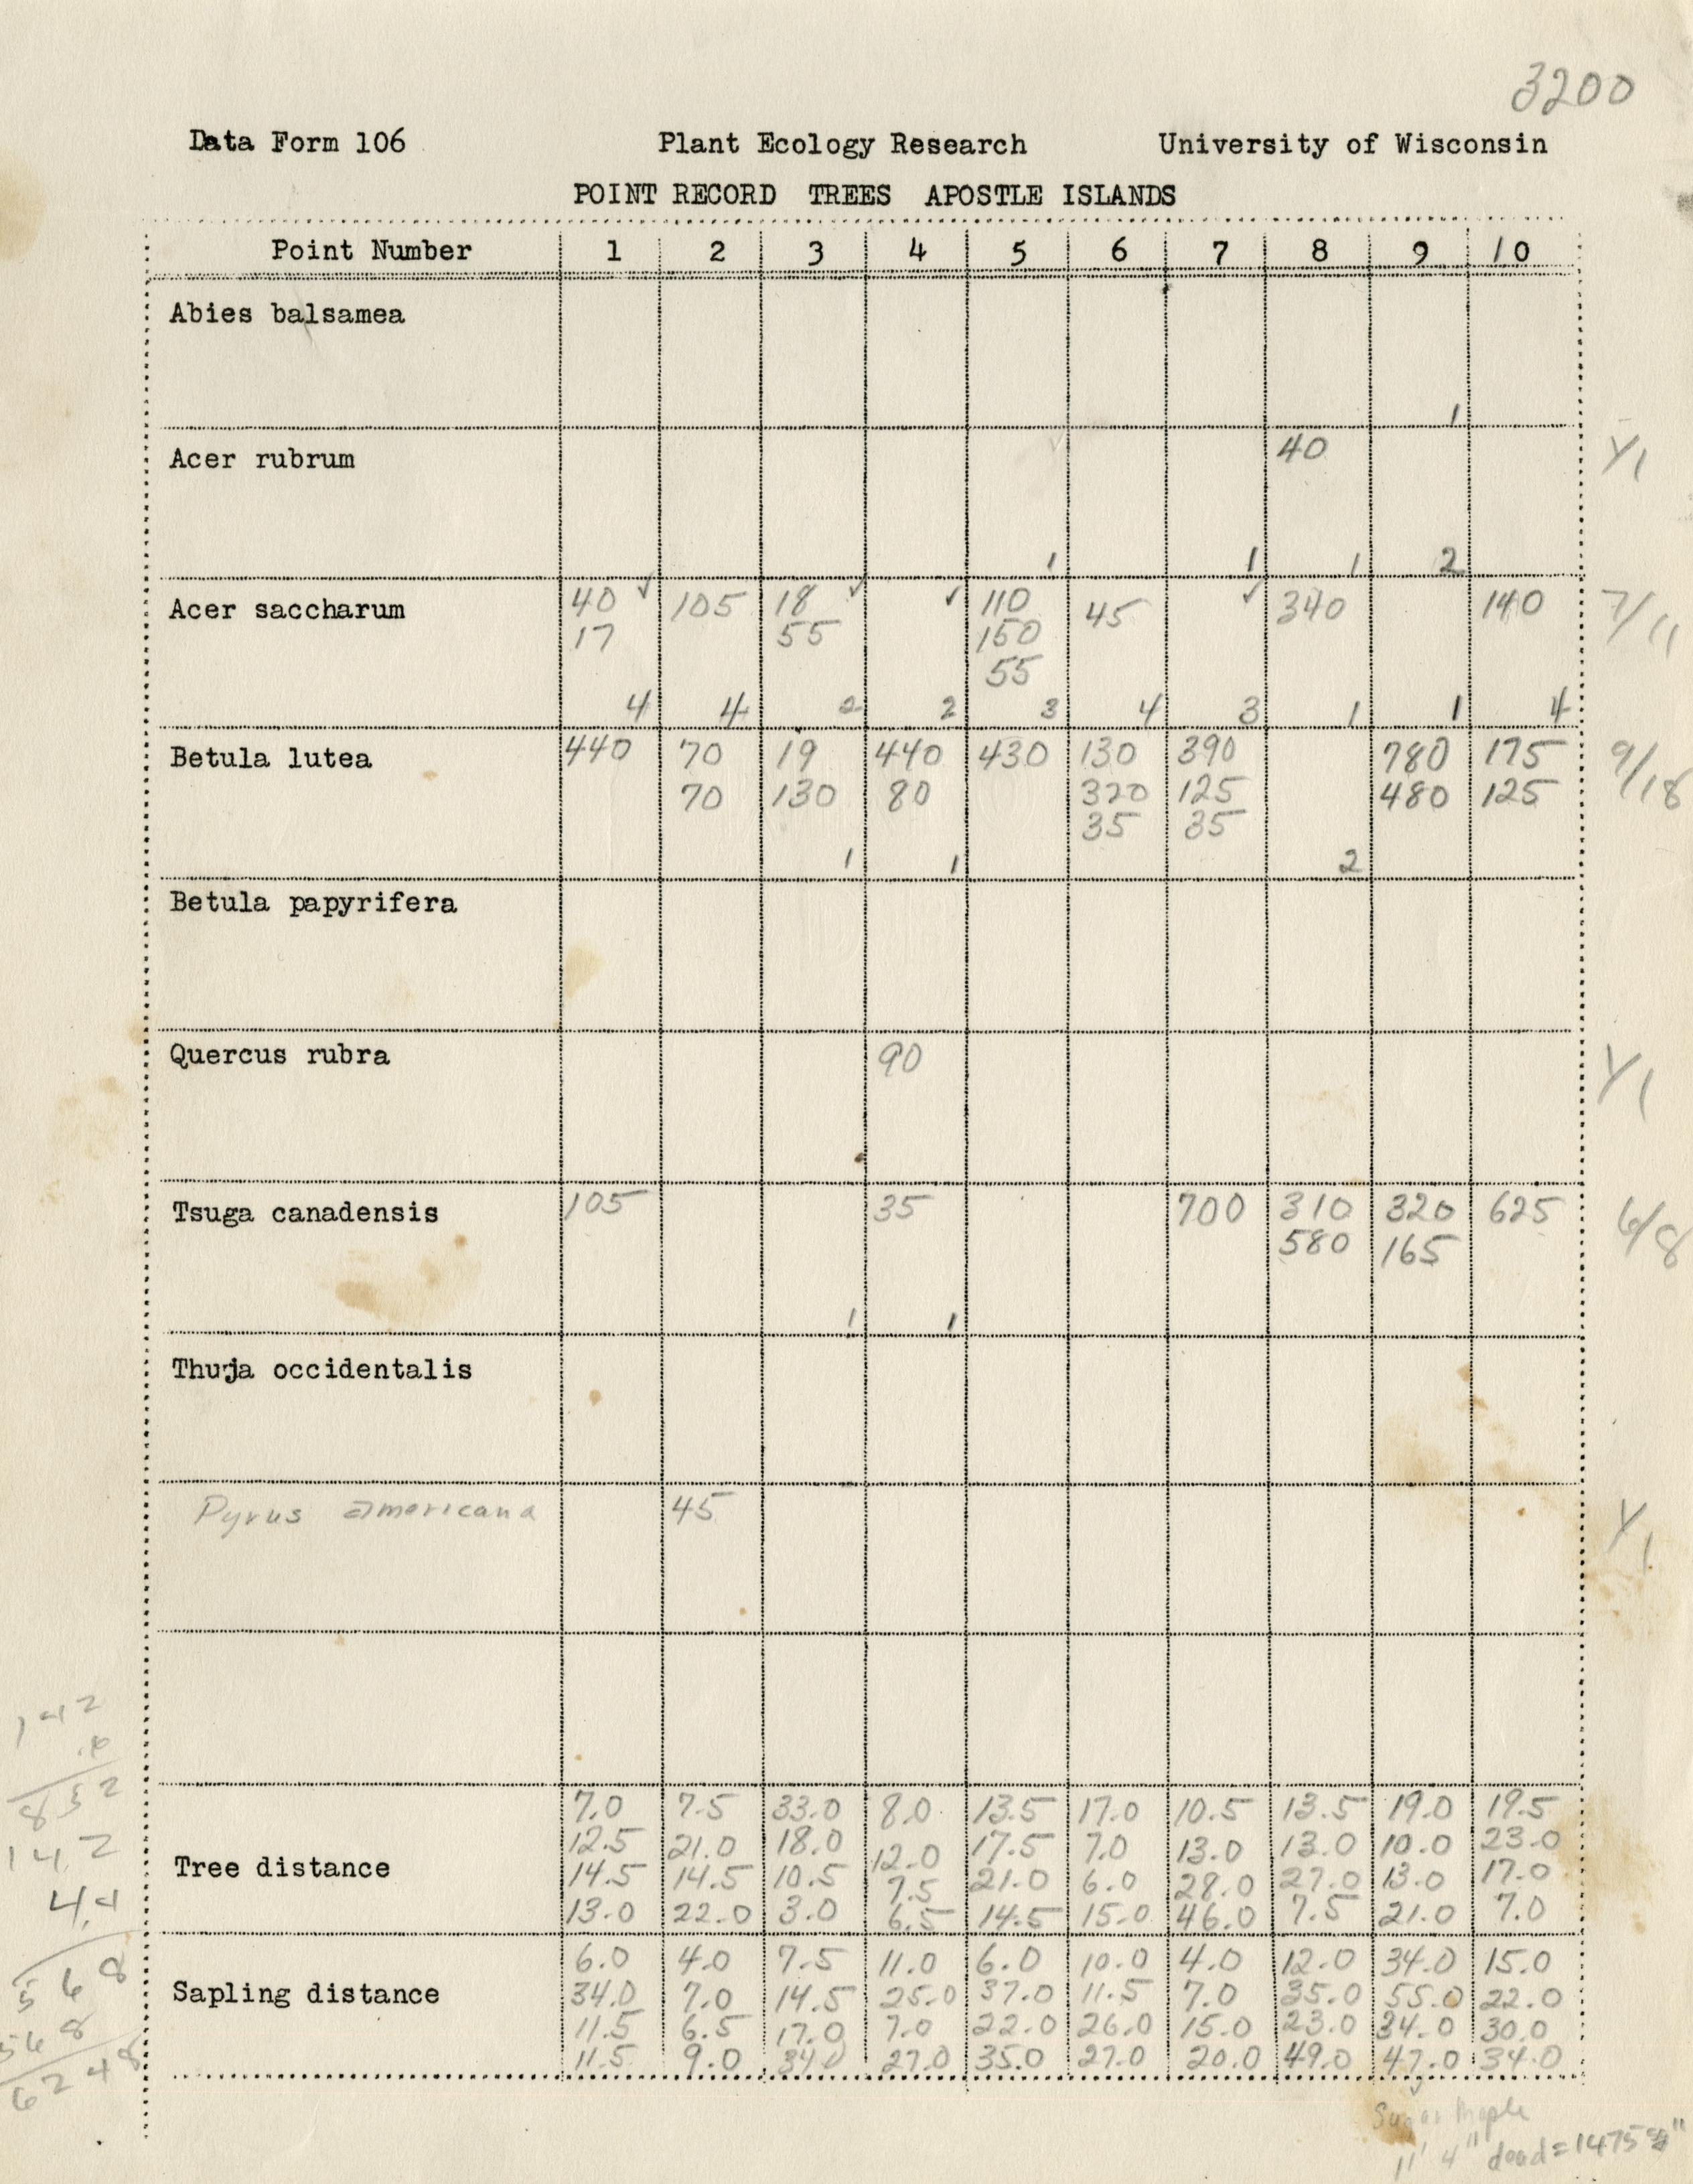 3200
Data Form 106 Plant Ecology Research University of Wisconsin
POINT RECORD TREES APOSTLE ISLANDS
Point Number 1 2 3 4 5 6 7 8 9 10
Abies balsamea
1
Acer rubrum 40 1/1
1 1 1 2
Acer saccharum 40 ✓ 105 18 ✓ ✓ 110 45 ✓ 340 140 7/11
17 55 150
55
4 4 2 2 3 4 3 1 1 4
Betula lutea 440 70 19 440 430 130 390 780 175 9/18
70 130 80 320 125 480 125
35 35
1 1 2
Betula papyrifera
Quercus rubra 90 1/1
Tsuga canadensis 105 35 700 310 320 625 6/8
580 165
1 1
Thuja occidentalis
Pyrus americana 45 1/1
142
.6
852
7.0 7.5 33.0 8.0 13.5 17.0 10.5 13.5 19.0 19.5
12.5 21.0 18.0 12.0 17.5 7.0 13.0 13.0 10.0 23.0
Tree distance
14.5 14.5 10.5 7.5 21.0 6.0 28.0 27.0 13.0 17.0
13.0 22.0 3.0 6.5 14.5 15.0 46.0 7.5 21.0 7.0
142
4.4
568
568
6248
6.0 4.0 7.5 11.0 6.0 10.0 4.0 12.0 34.0 15.0
Sapling distance 34.0 7.0 14.5 25.0 37.0 11.5 7.0 35.0 55.0 22.0
11.5 6.5 17.0 7.0 22.0 26.0 15.0 23.0 34.0 30.0
11.5 9.0 34.0 27.0 35.0 27.0 20.0 49.0 47.0 34.0
Sugar Maple
11' 4" dead = 1475